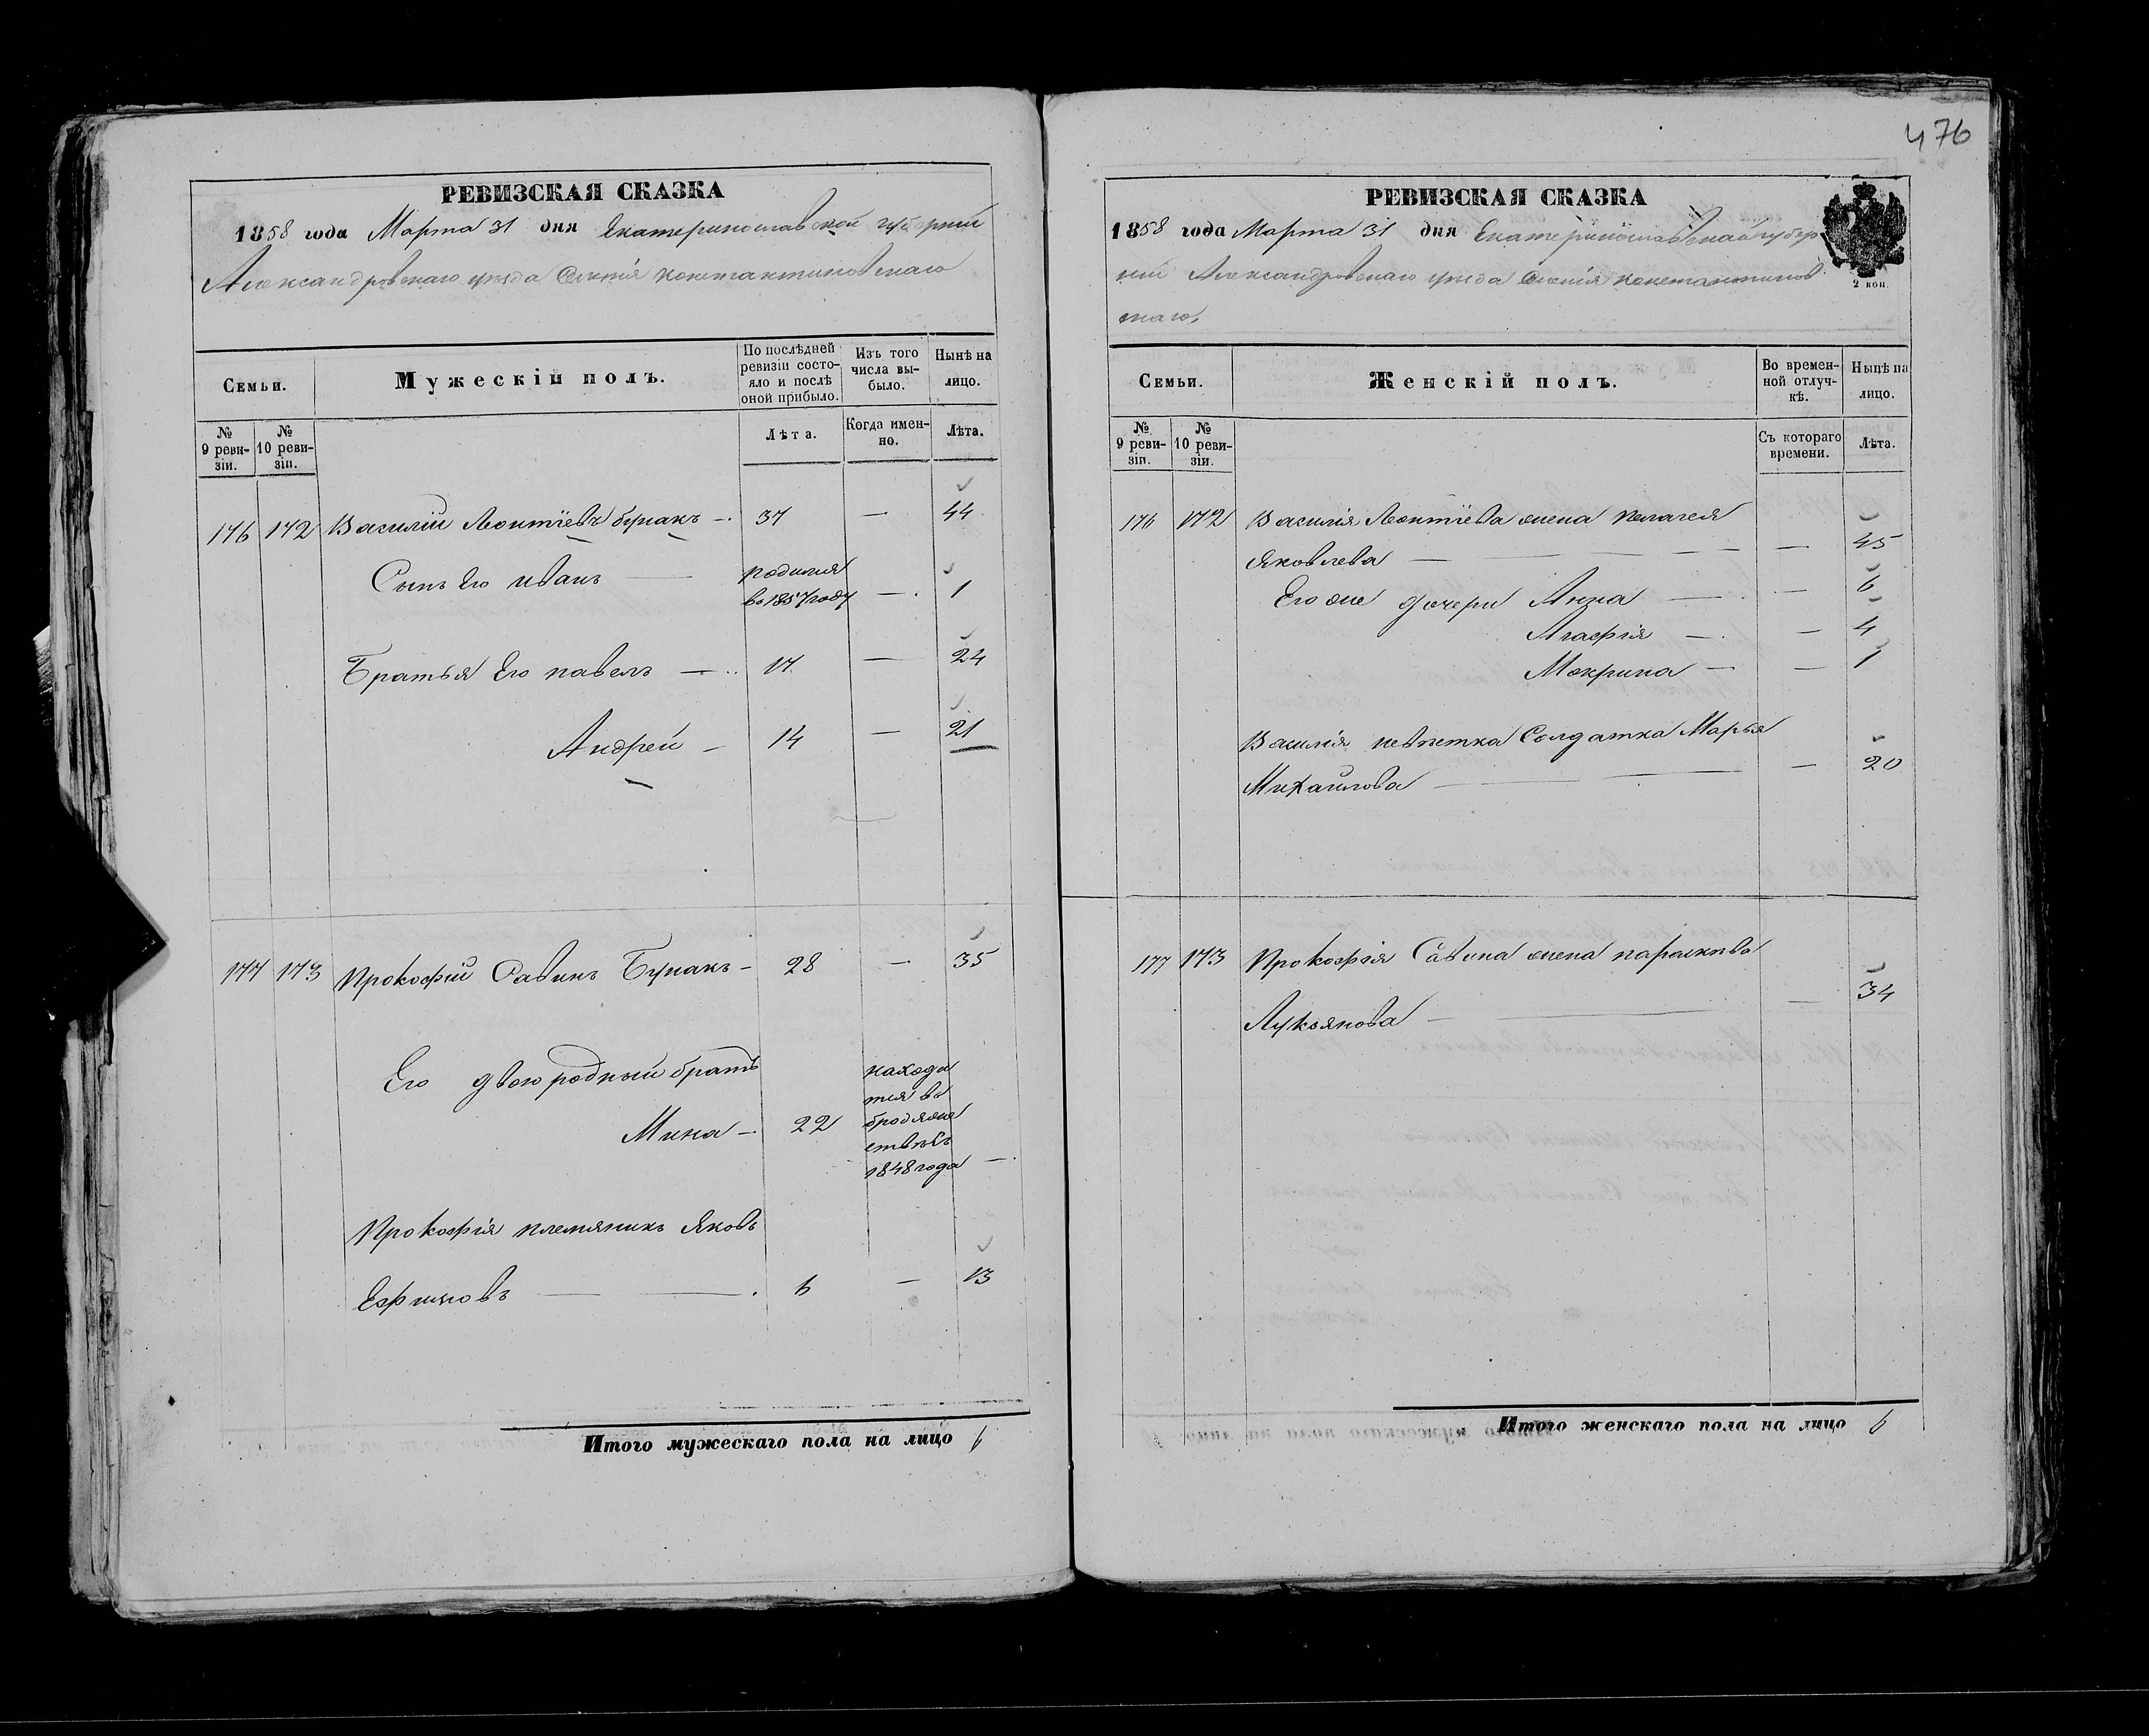 476
РЕВИЗСКАЯ СКАЗКА
1858 года Марта 31 дня Екатеринославской губернии
Александровскаго уезда Селенія константиновскаго
Семьи.
Мужескій полъ.
По послѣдней ревизіи состо-
яло и послѣ оной прибыло.
Изъ того числа вы-
было.
Нынѣ на лицо.
№ 9 реви-
зіи.
№ 10 реви-
зіи.
Лѣта.
Когда имен-
но.
Лѣта.
176 172 Василій Леонтіевъ бунакъ — 37 — 44
Сынъ Его иванъ — родился
во 1857 году — 1
Братья Его павелъ — 17 — 24
Андрей — 14 — 21
177 173 Прокофій Савинъ Бунакъ — 28 — 35
Его двоюродный братъ
Мина — 22
находи
тся въ
бродяже
ствѣ съ
1848 года —
Прокофія племяникъ Яковъ
Ефимовъ — 6 — 13
Итого мужескаго пола на лицо 6
РЕВИЗСКАЯ СКАЗКА
1858 года Марта 31 дня Екатеринославской губер
ніи Александровскаго уезда Селенія константинов
скаго,
2 коп.
Семьи.
Женскій полъ.
Во времен-
ной отлуч-
кѣ.
Нынѣ на лицо.
№ 9 реви-
зіи.
№ 10 реви-
зіи.
Съ котораго времени.
Лѣта.
176 172 Василія Леонтіева жена пелагея
Яковлева — — 45
Его же дочери Анна — — 6
Агафія — — 4
Мокрина — — 1
Василія невѣстка Солдатка Марья
Михайлова — — 20
177 173 Прокофія Савина жена парасковья
Лукьянова — — 34
Итого женскаго пола на лицо 6